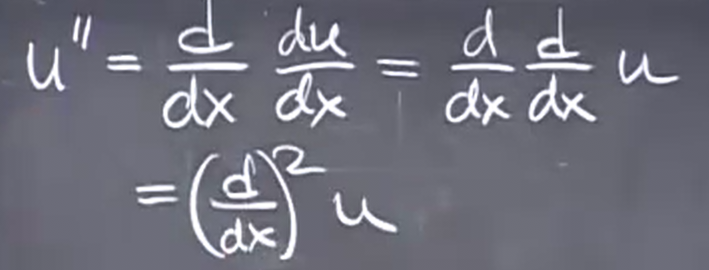 u'' = d/dx du/dx = d/dx d/dx u
= (d/dx)² u